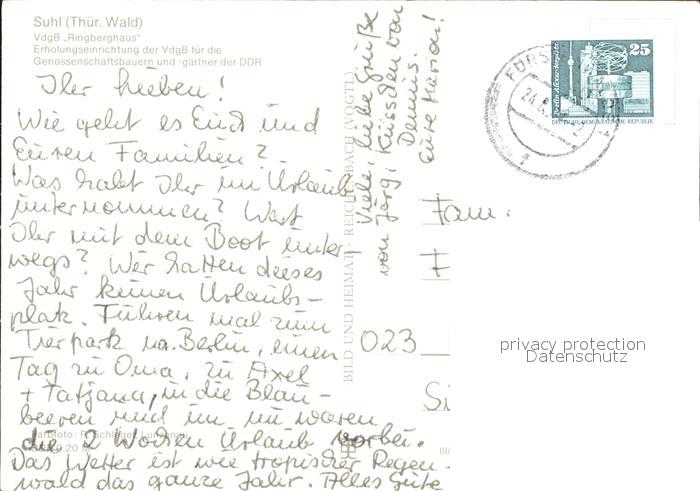 Suhl (Thür. Wald)
VdgB „Ringberghaus"
Erholungseinrichtung der VdgB für die
Genossenschaftsbauern und -gärtner der DDR
Ihr Lieben!
Wie geht es Euch und
Euren Familien?
Was habt Ihr im Urlaub
unternommen? Wart
Ihr mit dem Boot unter-
wegs? Wir hatten dieses
Jahr keinen Urlaubs-
platz. Fuhren mal zum
Tierpark na. Berlin, einen
Tag zu Oma, zu Axel
+ Tatjana, in die Blau-
beeren und im nu waren
die 2 Wochen Urlaub vorbei.
Das Wetter ist wie tropischer Regen-
wald das ganze Jahr. Alles Gute
Viele, liebe Grüße
von Jörg, Küsschen von
Dennis.
Eure Marion!
BILD UND HEIMAT REICHENBACH (VOGTL)
Fam.
F
023
Si
25
Berlin, Alexanderplatz
DEUTSCHE DEMOKRATISCHE REPUBLIK
24.8.
privacy protection
Datenschutz